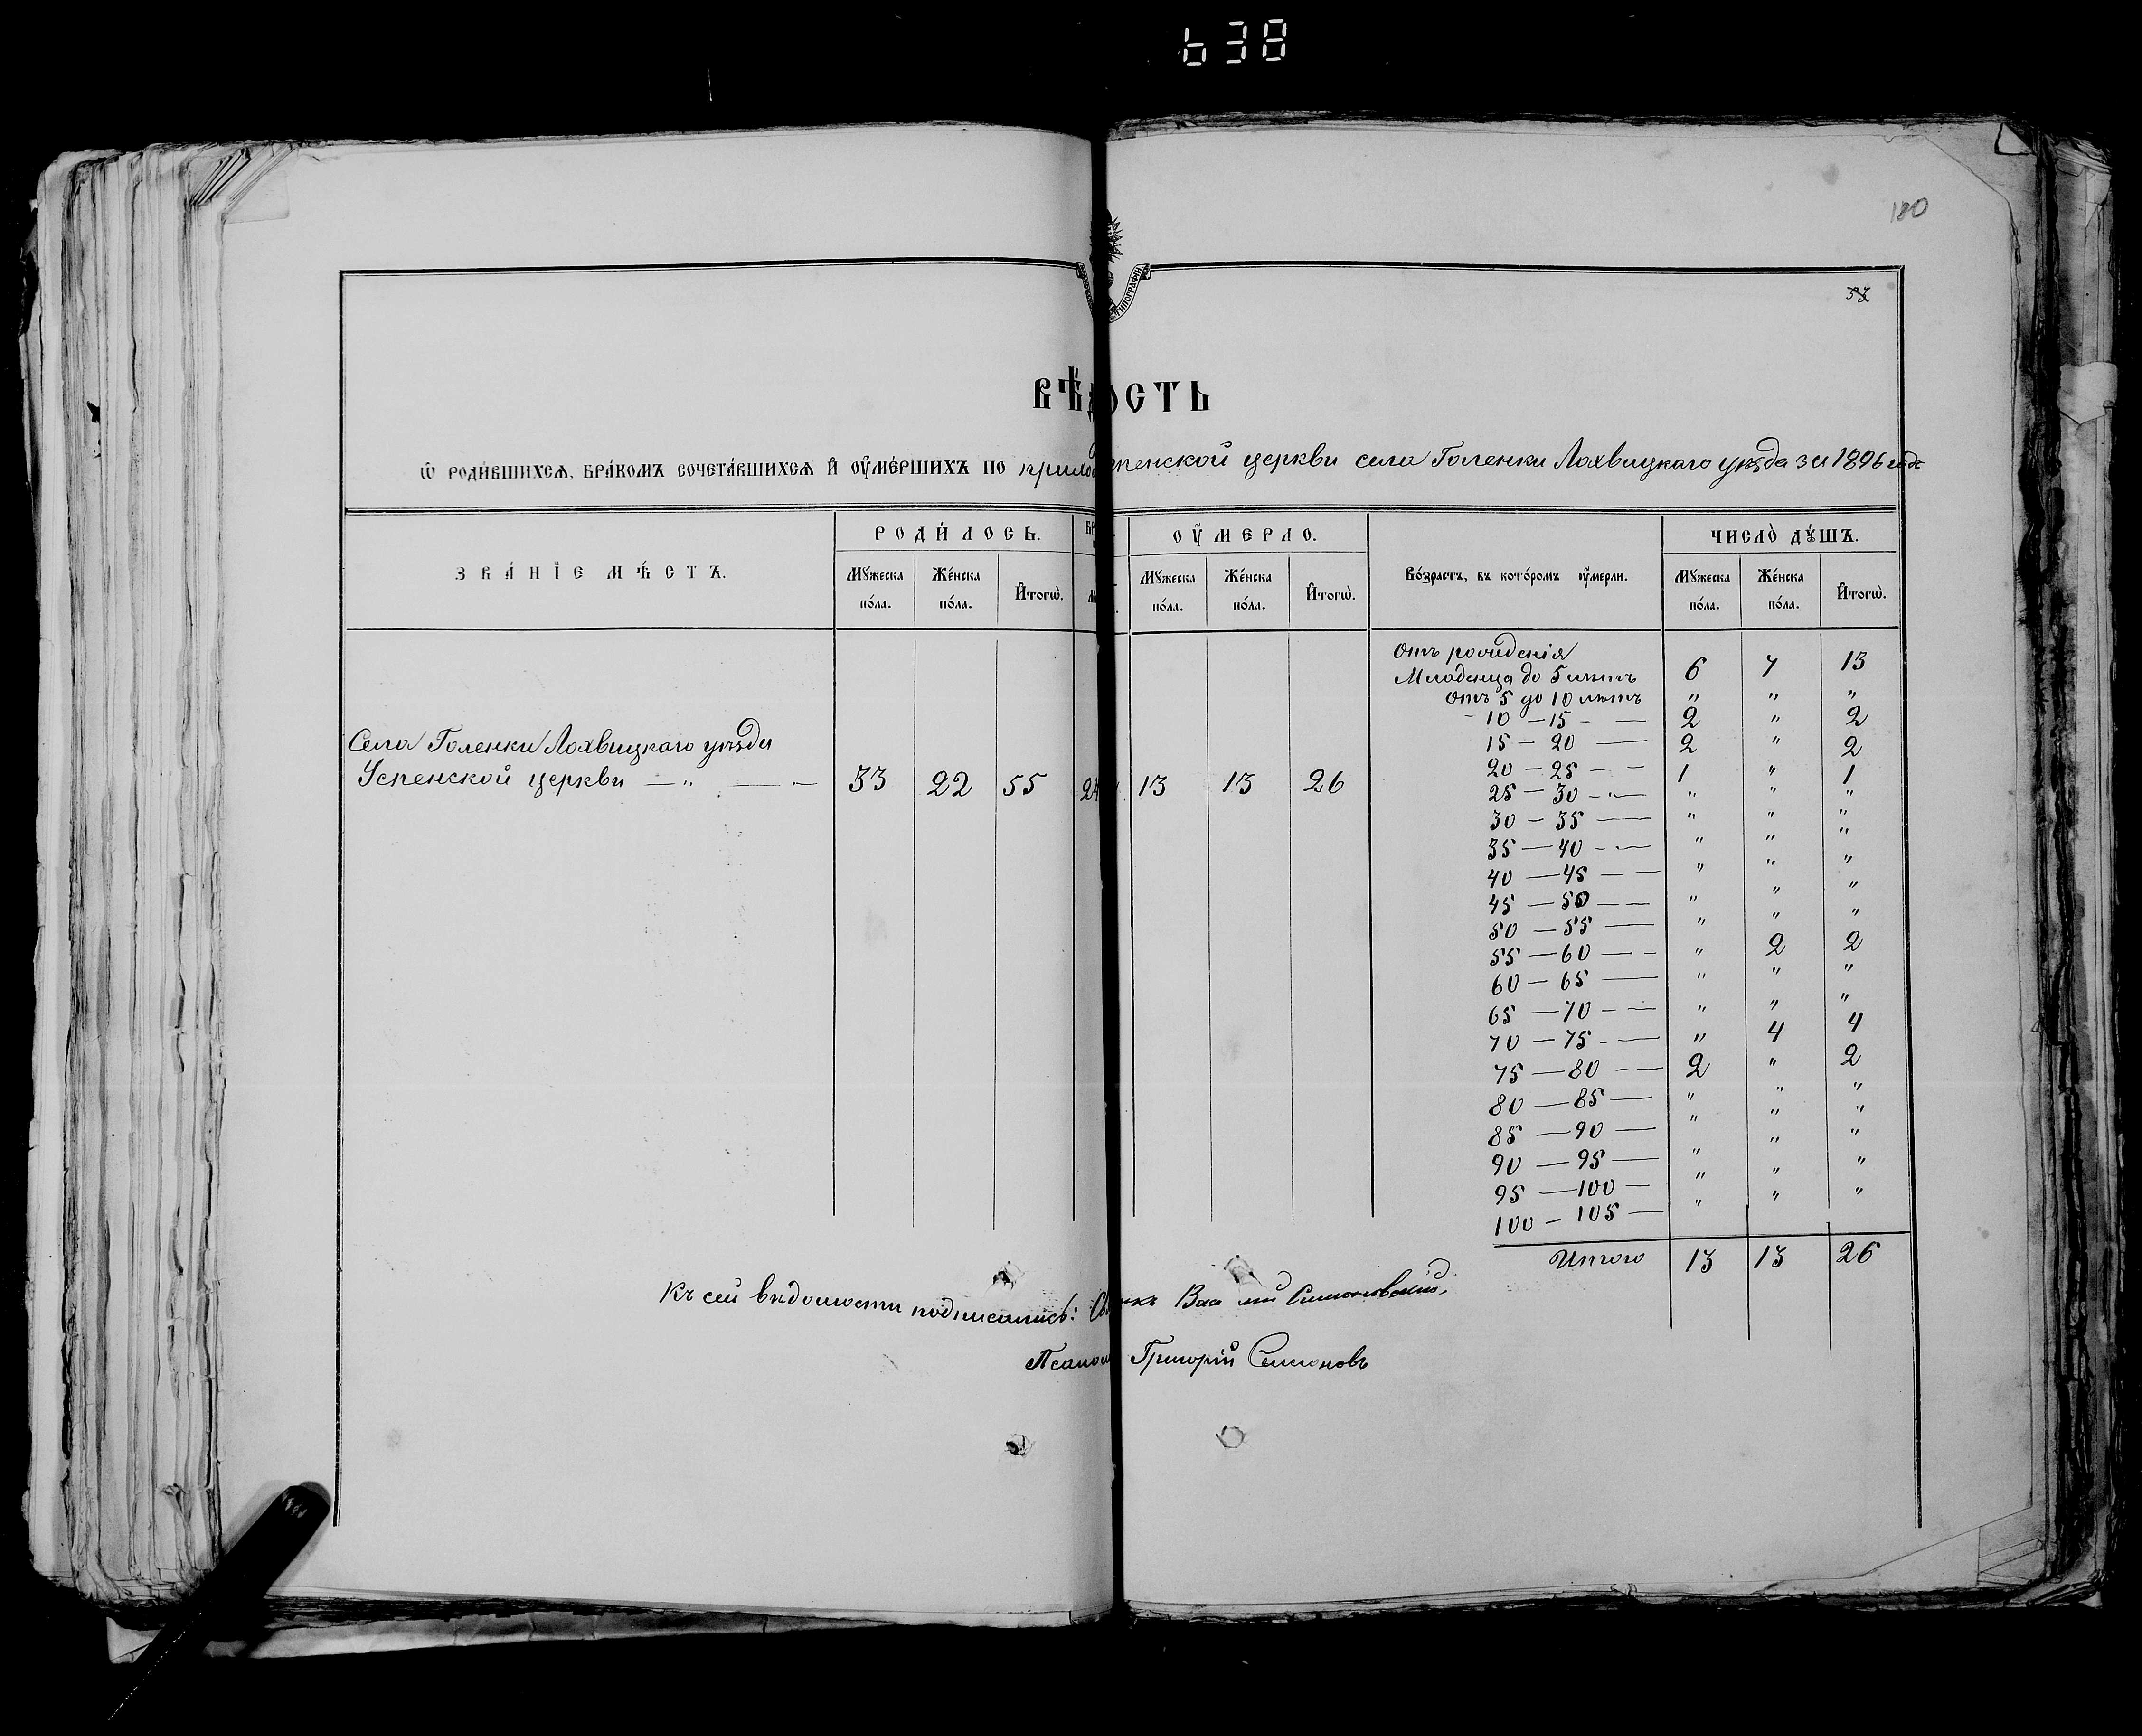 638
180
ТИПОГРАФІИ
ВѢД ОСТЬ
Ѡ҆ РОДИ́ВШИХСѦ, БРА́КОМЪ СОЧЕТА́ВШИХСѦ И҆ ОУ҆МЕ́РШИХЪ ПО приход пенской церкви села Голенки Лохвицкаго уѣзда за 1896 годъ
ЗВА́НІЕ МѢ́СТЪ.
РОДИ́ЛОСЬ.
ОУ҆́МЕРЛО.
Во́зрастъ, въ кото́ромъ оу҆́мерли.
ЧИСЛО̀ ДꙊ́ШЪ.
Мꙋ́жеска по́ла. Же́нска по́ла. И҆тогѡ̀.
Мꙋ́жеска по́ла. Же́нска по́ла. И҆тогѡ̀.
Мꙋ́жеска по́ла. Же́нска по́ла. И҆тогѡ̀.
Села Голенки Лохвицкаго уѣзда
Успенской церкви — „ — — 33 22 55 24 13 13 26
Отъ рожденія
Младенца до 5 лѣтъ 6 7 13
отъ 5 до 10 лѣтъ „ „ „
- 10 — 15 - — 2 „ 2
15 — 20 — 2 „ 2
20 — 25 - - 1 „ 1
25 — 30 - „ — „ „ „
30 — 35 — „ „ „
35 — 40 - - — „ „ „
40 — 45 — — „ „ „
45 — 50 — — „ „ „
50 — 55 — „ „ „
55 — 60 — - „ 2 2
60 — 65 — „ „ „
65 — 70 - — „ „ „
70 — 75 - — „ 4 4
75 — 80 - — 2 „ 2
80 — 85 — „ „ „
85 — 90 — „ „ „
90 — 95 — „ „ „
95 — 100 — „ „ „
100 — 105 — „ „ „
Итого 13 13 26
Къ сей вѣдомости подписались: Св икъ Васи лій Симоновскій,
Псалом Григорій Симоновъ